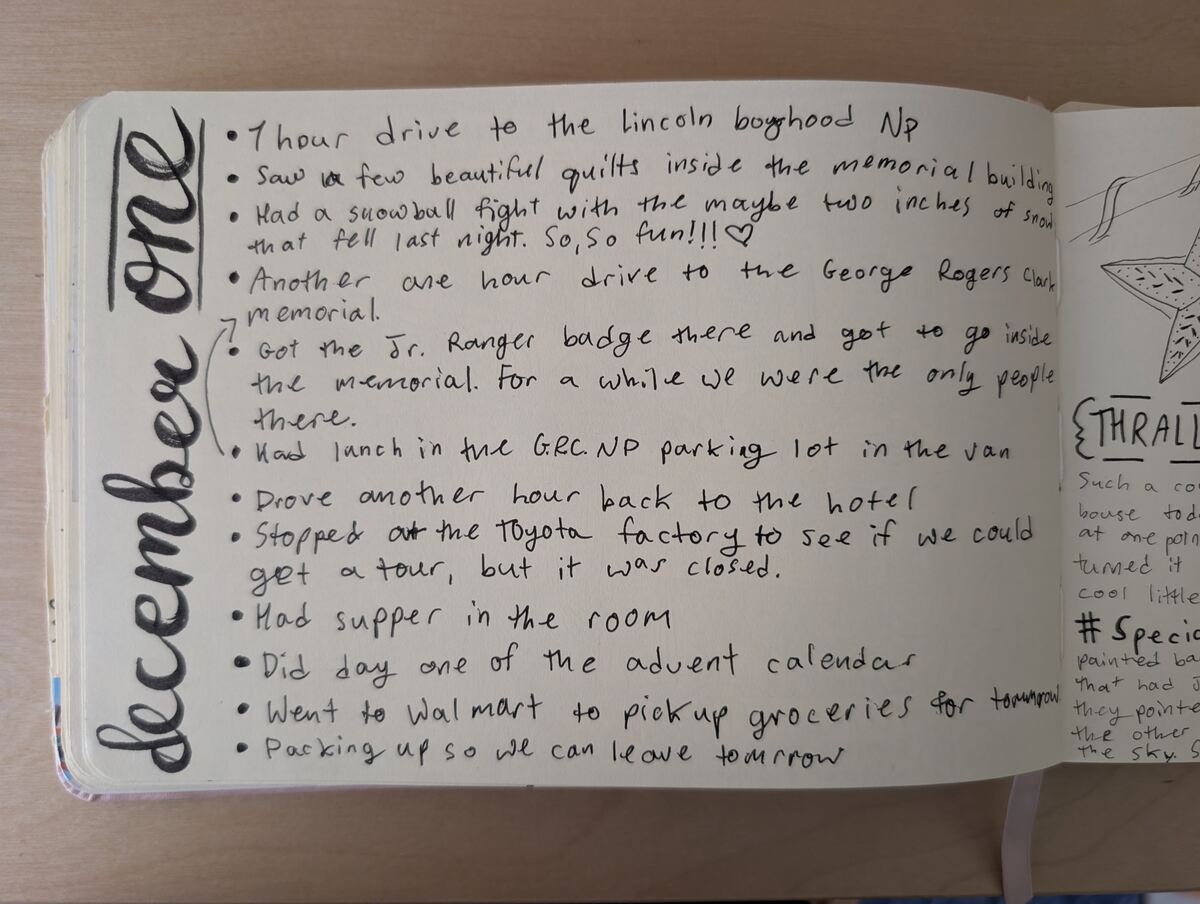 december one
• 1 hour drive to the Lincoln boyhood NP
• Saw a few beautiful quilts inside the memorial building
• Had a snowball fight with the maybe two inches of snow
that fell last night. So, So fun!!! ♡
• Another one hour drive to the George Rogers Clark
memorial.
• Got the Jr. Ranger badge there and got to go inside
the memorial. For a while we were the only people
there.
• Had lunch in the G.R.C. NP parking lot in the van
• Drove another hour back to the hotel
• Stopped at the Toyota factory to see if we could
get a tour, but it was closed.
• Had supper in the room
• Did day one of the advent calendar
• Went to Walmart to pick up groceries for tomrrow
• Packing up so we can leave tomrrow
{THRALL
Such a
house
at one
turned it
cool little
# Specia
painted
that had
they pointe
the other
the sky.